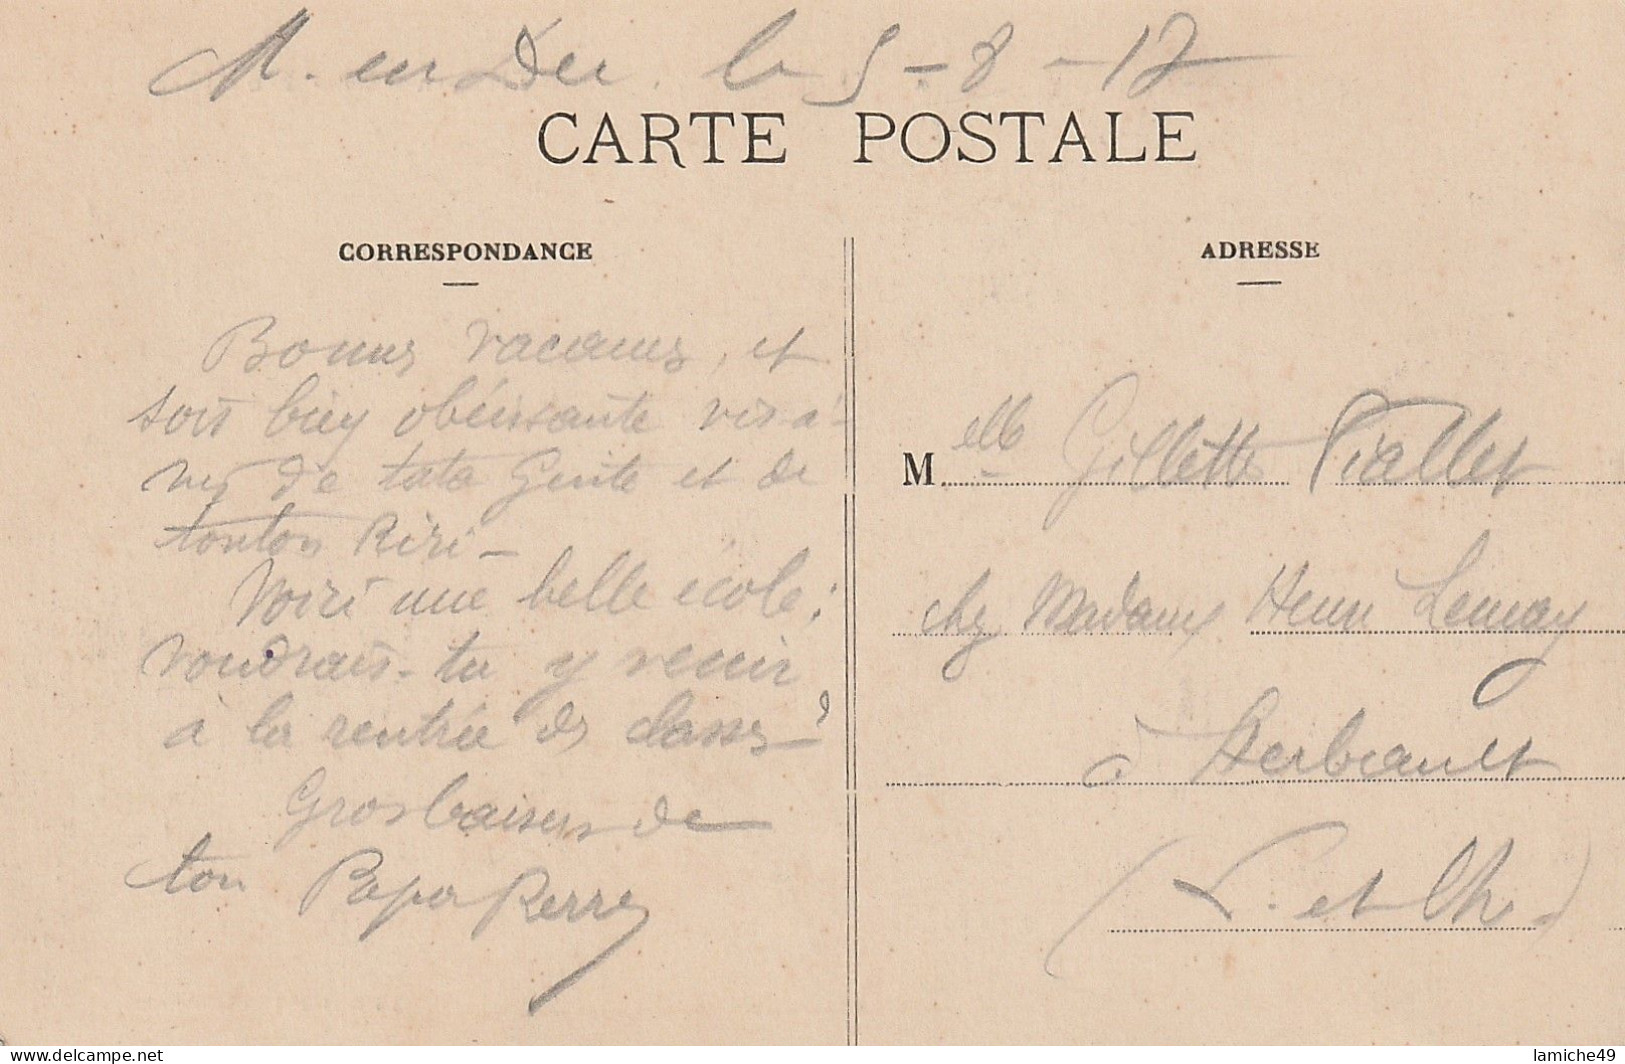 M. en Der le 5-8-17
CARTE POSTALE
CORRESPONDANCE
ADRESSE
Bonnes vacances, et
sois bien obéissante vis à
vis de tata Ginite et de
tonton Riri -
Voici une belle école ;
voudrais-tu y venir
à la rentrée des classes ?
Gros baisers de
ton Papa Pierre
Melle Gillette Viallet
chez Madame Henri Lemay
à Herbault
(L. et Cher)
delcampe.net
lamiche49